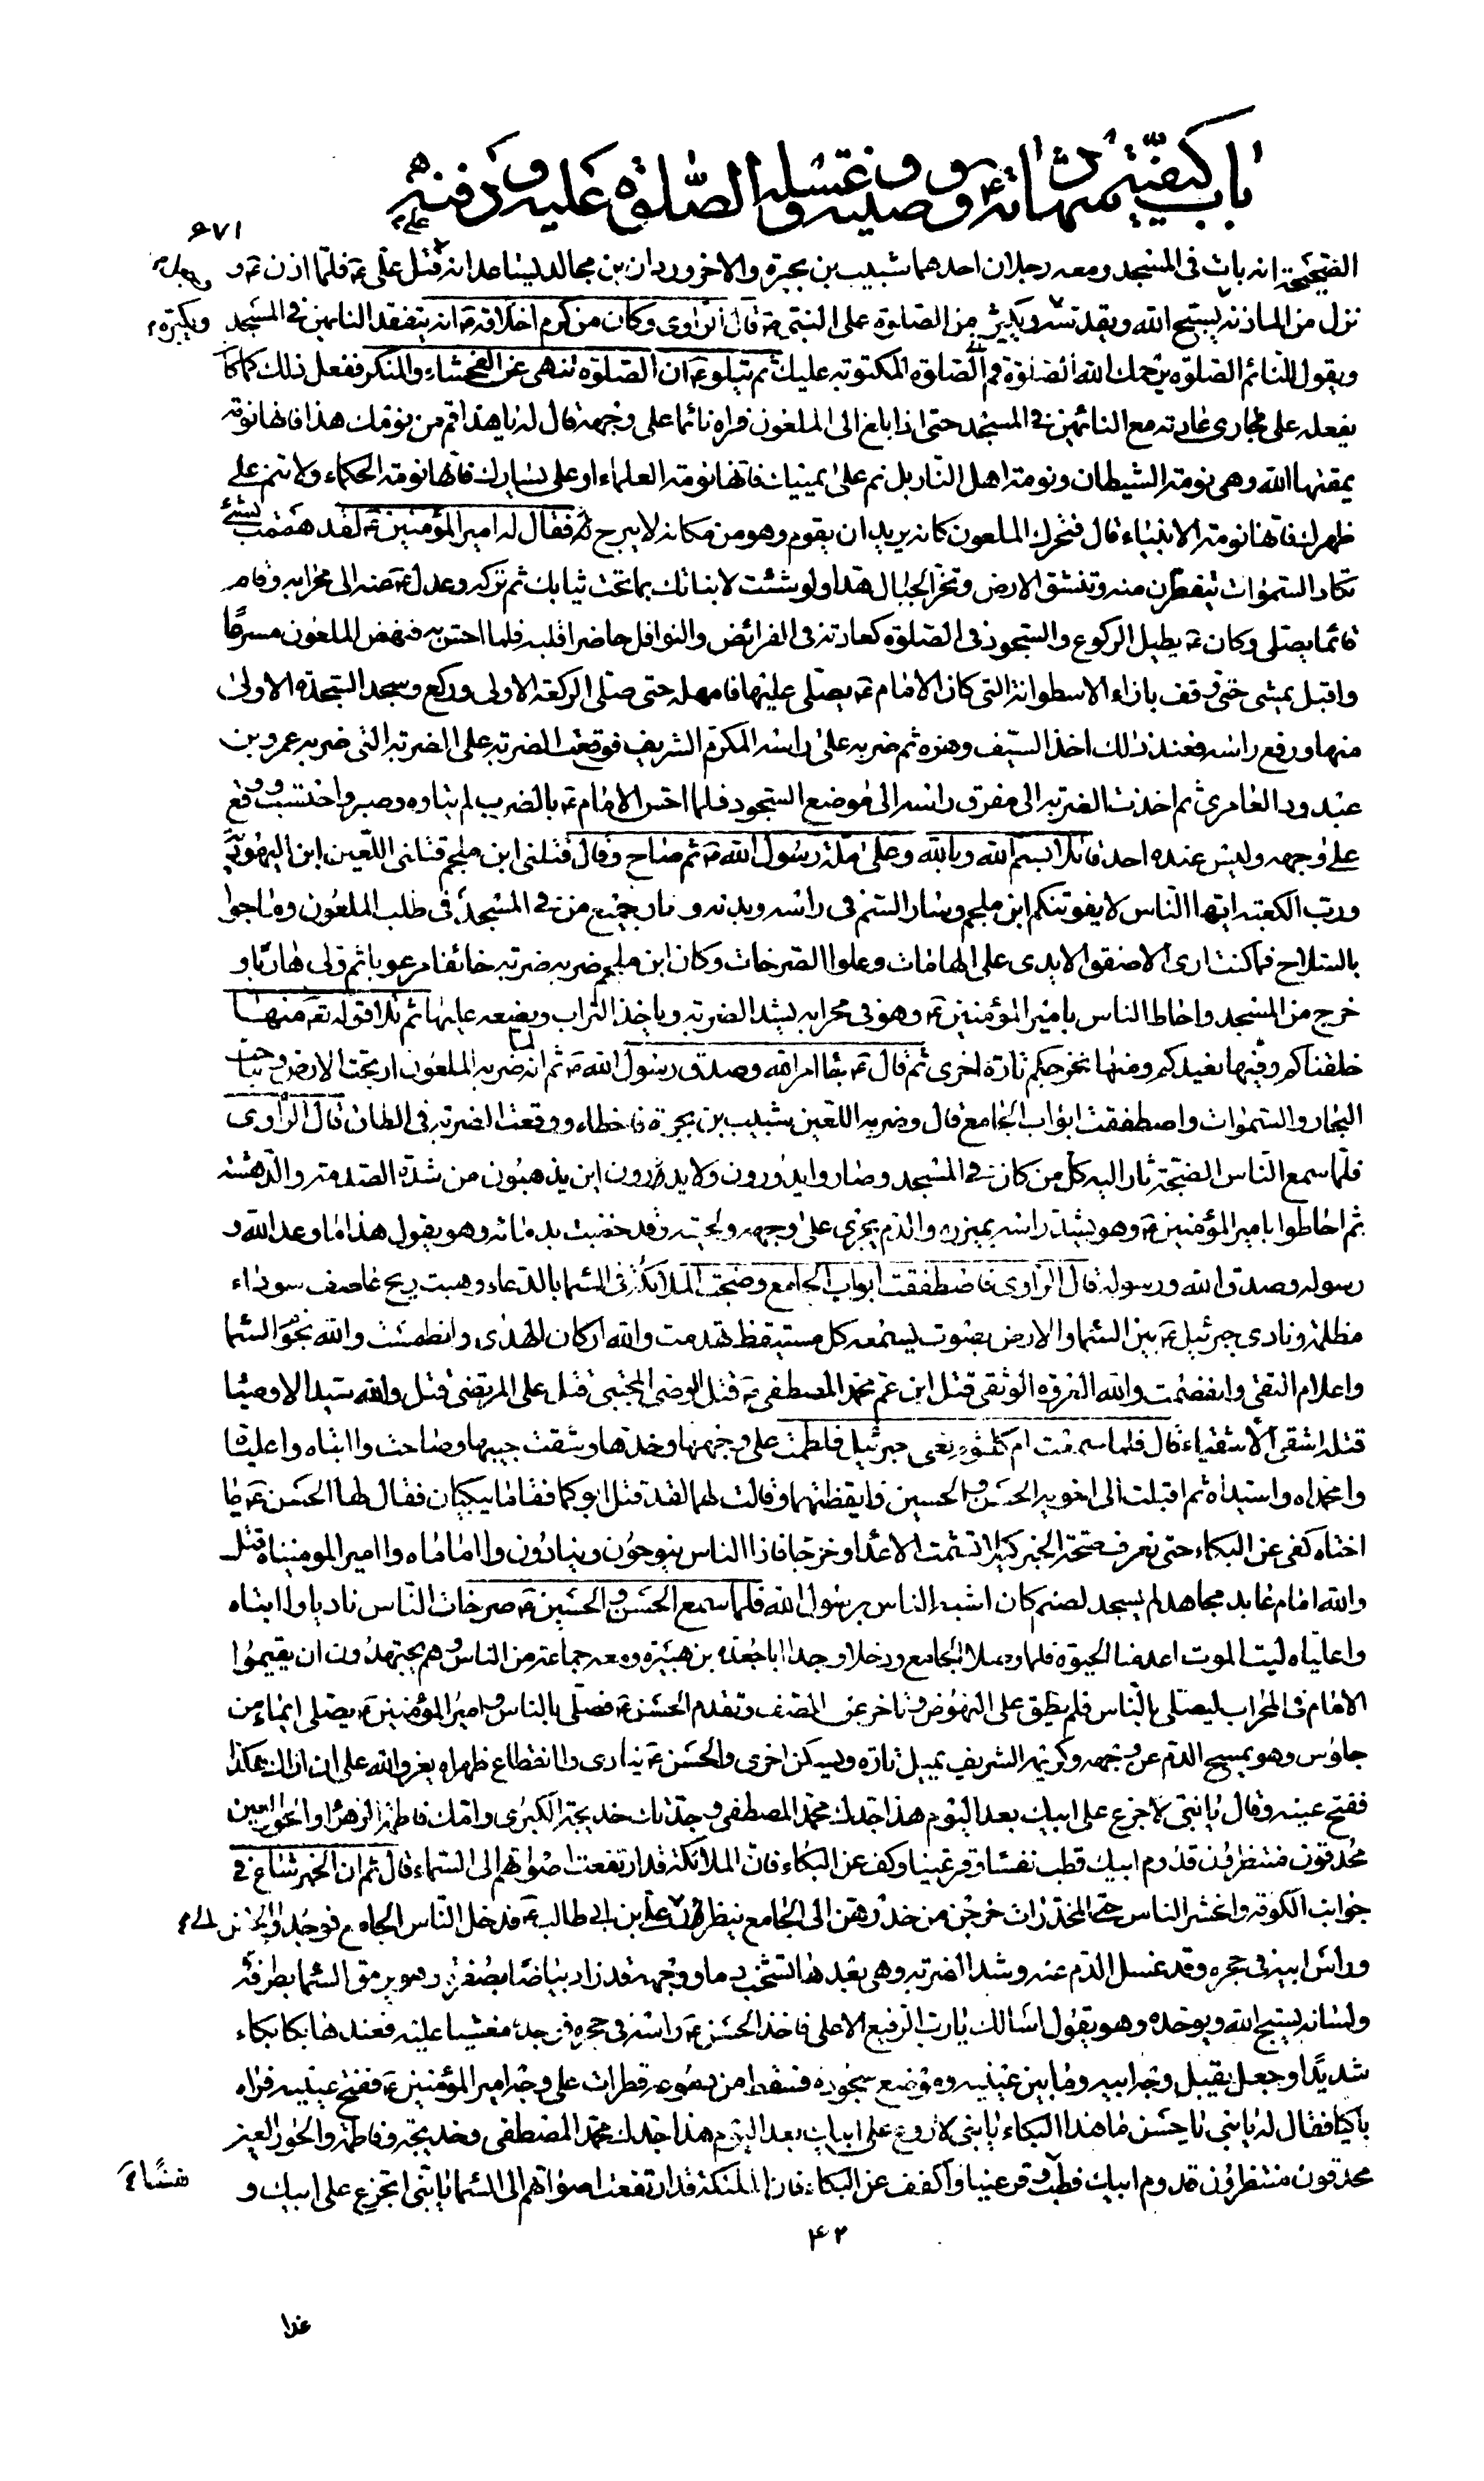 باب كيفيّة شهادته و وصيته و غسله و الصّلوة عليه و دفنه
علي
٦٧١
الصحيحة انه بات في المسجد ومعه رجلان احدهما شبيب بن بجرة والاخر وردان بن مجالد ليساعدانه على قتل علي ع فلمّا اذن ع و
وجعل
نزل من الماذنه يسبح الله ويقدّسه ويكثر من الصلوة على النبي ص قال الراوى وكان من كرم اخلاقه ع انه يتفقد النائمين في المسجد
ويكبّره
ويقول للنائم الصلوة يرحمك الله الصلوة قم الى الصلوة المكتوبة عليك ثم يتلو ع ان الصلوة تنهى عن الفحشاء والمنكر ففعل ذلك كما كان
يفعله على مجارى عادته مع النائمين في المسجد حتى اذا بلغ الى الملعون فراه نائما على وجهه قال له يا هذا قم من نومك هذا فانها نومة
يمقتها الله وهى نومة الشيطان ونومة اهل النار بل نم على يمينك فانها نومة العلماء او على يسارك فانها نومة الحكماء ولا تنم على
ظهرك فانها نومة الانبياء قال فتحرك الملعون كانه يريد ان يقوم وهو من مكانه لا يبرح فقال له امير المؤمنين ع لقد هممت بشئ
تكاد السموات يتفطرن منه وتنشق الارض وتخر الجبال هدا ولو شئت لانباتك بما تحت ثيابك ثم تركه وعدل عنه الى محرابه وقام
قائما يصلى وكان ع يطيل الركوع والسجود في الصلوة كعادته في الفرائض والنوافل حاضرا قلبه فلما احس به فنهض الملعون مسرعًا
واقبل يمشى حتى وقف بازاء الاسطوانة التى كان الامام ع يصلى عليها فامهله حتى صلى الركعة الاولى وركع وسجد السجدة الاولى
منها ورفع راسه فعند ذلك اخذ السيف وهزه ثم ضربه على راسه المكرم الشريف فوقعت الضربة على الضربة التى ضربه عمرو بن
عبد ود العامرى ثم اخذت الضربة الى مفرق راسه الى موضع السجود فلما احس الامام ع بالضرب لم يتاوه وصبر واحتسب ووقع
على وجهه وليس عنده احد قائلا بسم الله وبالله وعلى ملة رسول الله ص ثم صاح وقال قتلنى ابن ملجم قتلنى اللعين ابن اليهودية
ورب الكعبة ايها الناس لا يفوتنكم ابن ملجم وسار السم في راسه وبدنه وثار جميع من في المسجد في طلب الملعون وماجوا
بالسلاح فما كنت ارى الا صفق الايدى على الهامات وعلوا الصرخات وكان ابن ملجم ضربه ضربة خائفا مرعوبا ثم ولى هاربًا و
خرج من المسجد واحاط الناس بامير المؤمنين ع وهو في محرابه يشد الضربة وياخذ التراب ويضعه عليها ثم تلا قوله تع منها
خلقناكم وفيها نعيدكم ومنها نخرجكم تارة اخرى ثم قال ع جاء امر الله وصدق رسول الله ص ثم انه لما ضربه الملعون ارتجت الارض وماجت
البحار والسموات واصطفقت ابواب الجامع قال وضربه اللعين شبيب بن بجرة فاخطاه ووقعت الضربة في الطاق قال الراوى
فلما سمع الناس الضجة ثار اليه كل من كان في المسجد وصاروا يدورون ولا يدرون اين يذهبون من شدة الصدمة والدهشة
ثم احاطوا بامير المؤمنين ع وهو يشد راسه بميزره والدم يجرى على وجهه ولحيته وقد خضبت بدمائه وهو يقول هذا ما وعد الله و
رسوله وصدق الله ورسوله قال الراوى فاصطفقت ابواب الجامع وضجت الملائكة في السماء بالدعاء وهبت ريح عاصف سوداء
مظلمة ونادى جبرئيل ع بين السماء والارض بصوت يسمعه كل مستيقظ تهدمت والله اركان الهدى وانطمست والله نجوم السماء
واعلام التقى وانفصمت والله العروة الوثقى قتل ابن عم محمد المصطفى ص قتل الوصى المجتبى قتل على المرتضى قتل والله سيد الاوصياء
قتله اشقى الاشقياء قال فلما سمعت ام كلثوم نعى جبرئيل فلطمت على وجهها وخدها وشقت جيبها وصاحت وا ابتاه واعلياه
وامحمداه واسيداه ثم اقبلت الى اخويها الحسن والحسين فايقظتهما وقالت لهما لقد قتل ابوكما فقاما يبكيان فقال لها الحسن ع يا
اختاه كفى عن البكاء حتى نعرف صحة الخبر كيلا تشمت الاعداء فخرجا فاذا الناس ينوحون وينادون وا اماماه وا امير المومنيناه قتل
والله امام عابد مجاهد لم يسجد لصنم كان اشبه الناس برسول الله فلما سمع الحسن والحسين ع صرخات الناس ناديا وا ابتاه
واعلياه ليت الموت اعدمنا الحيوة فلما وصلا الجامع ودخلا وجدا ابا جعدة بن هبيرة ومعه جماعة من الناس وهم يجتهدون ان يقيموا
الامام في المحراب ليصلى بالناس فلم يطق على النهوض وتاخر عن الصف وتقدم الحسن ع فصلى بالناس وامير المؤمنين ع يصلى ايماء من
جلوس وهو يمسح الدم عن وجهه وكريمه الشريف يميل تارة ويسكن اخرى والحسن ع ينادى وا انقطاع ظهراه يعز والله على ان اراك هكذا
ففتح عينه وقال يا بنى لا جزع على ابيك بعد اليوم هذا جدك محمد المصطفى وجدتك خديجة الكبرى وامك فاطمة الزهراء والحور العين
محدقون منتظرون قدوم ابيك فطب نفسا وقر عينا وكف عن البكاء فان الملائكة قد ارتفعت اصواتهم الى السماء قال ثم ان الخبر شاع في
جوانب الكوفة وانحشر الناس حتى المخدرات خرجن من خدرهن الى الجامع ينظرن الى على بن ابى طالب ع فدخل الناس الجامع فوجدوا الحسن
الى
وراس ابيه في حجره وقد غسل الدم عنه وشد الضربة وهى بعدها تشخب دما ووجهه قد زاد بياضا بصفرة وهو يرمق السماء بطرفه
ولسانه يسبح الله ويوحده وهو يقول اسالك يا رب الرفيع الاعلى فاخذ الحسن ع راسه في حجره فوجده مغشيا عليه فعندها بكا بكاء
شديدًا وجعل يقبل وجه ابيه وما بين عينيه وموضع سجوده فسقط من دموعه قطرات على وجه امير المؤمنين ع ففتح عينيه فراه
باكيا فقال له يا بنى يا حسن ما هذا البكاء يا بنى لا روع على ابيك بعد اليوم هذا جدك محمد المصطفى وخديجة وفاطمة والحور العين
محدقون منتظرون قدوم ابيك فطب وقر عينا واكفف عن البكاء فان الملئكة قد ارتفعت اصواتهم الى السماء يا بنى اتجزع على ابيك و
نفسًا
٤٢
غدا